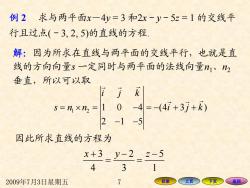 例2 求与两平面x-4y=3 和2x-y-5z=1 的交线平
行且过点(-3, 2, 5)的直线的方程.
解：因为所求在直线与两平面的交线平行，也就是直
线的方向向量s 一定同时与两平面的法线向量n₁、n₂
垂直，所以可以取
s = n₁ × n₂ = | i⃗ j⃗ k⃗ ; 1 0 -4 ; 2 -1 -5 | = -(4i⃗ + 3j⃗ + k⃗)
因此所求直线的方程为
(x+3)/4 = (y-2)/3 = (z-5)/1
2009年7月3日星期五 7 目录 上页 下页 返回